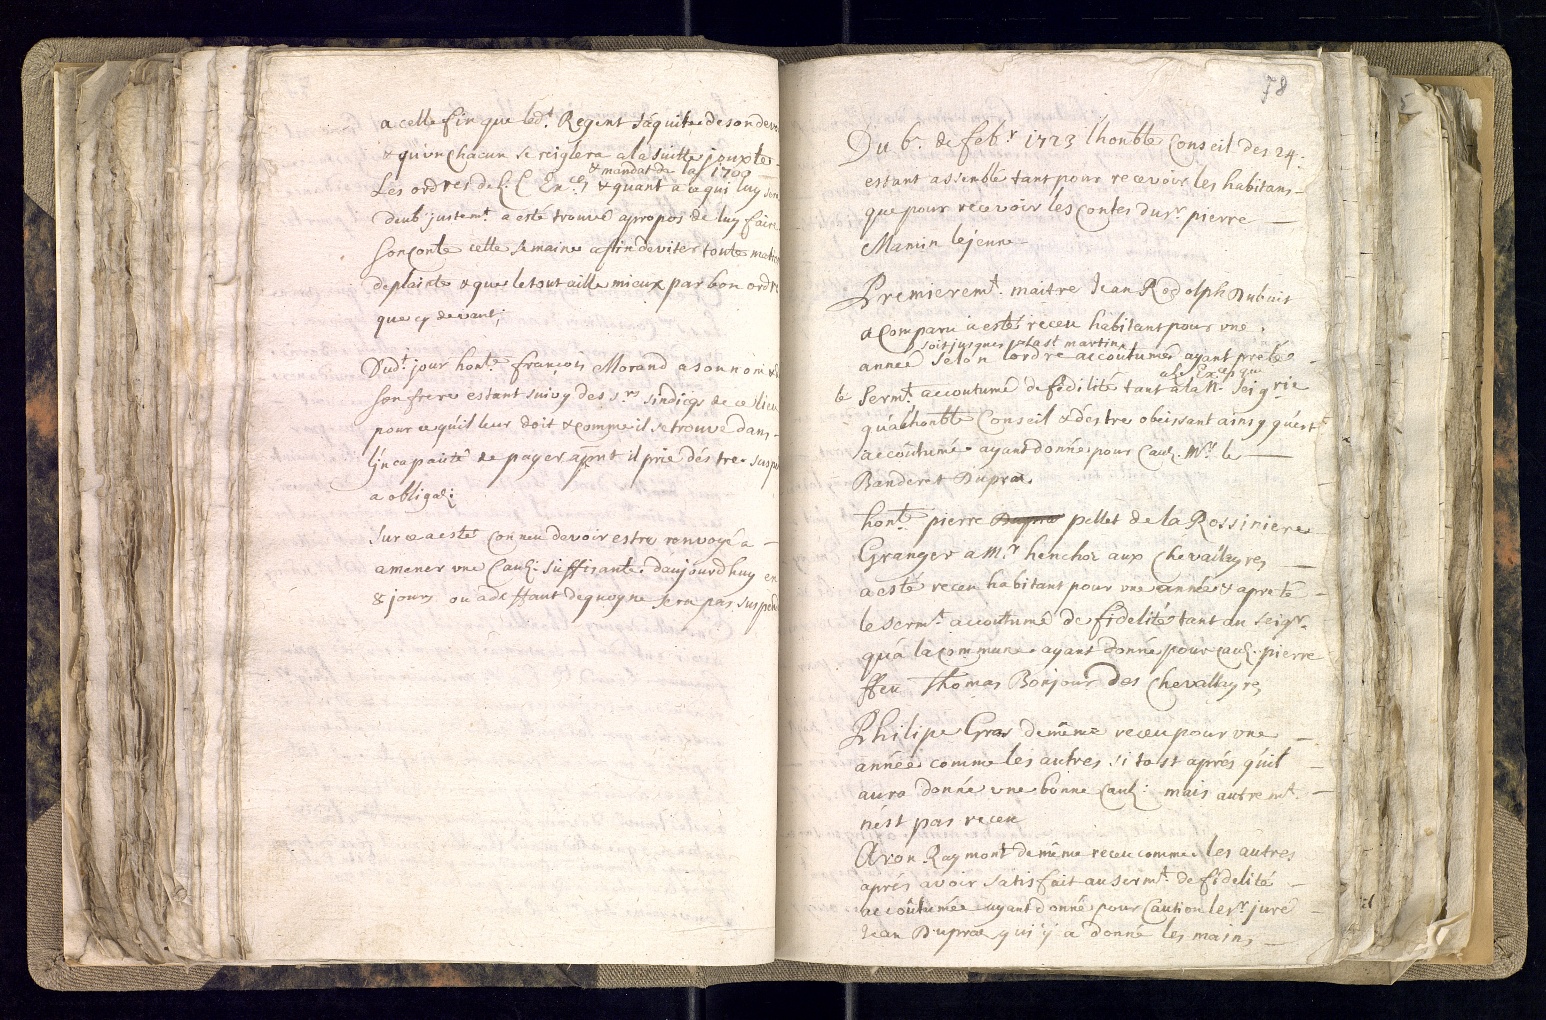 a celle fin que led.t Regent s'aquite de son dev
& qu'un chacun se reiglera a la suitte jouxte
& mandat de la 1700
Les ordres de L. E. En ces, & quant a ce qui luy
deub justem.t a esté trouvé apropos de luy faire
son conte cette semaine affin d'eviter toute mati
de plainte & que le tout aille mieux par bon ordr
que cy devant;
Dud.t jour hon.te françois Morand a son nom &
son frere estant suivy des s.rs sindicqs de ce lieu
pour ce qu'il leur doit & comme il se trouve dans
L'incapacité de payer a p̃nt il prie d'estre susp
a obliga.:
Sur ce a esté conneu devoir estre renvoyé a
amener une Cau͠: suffisante d'aujourd'huy en
8 jours ou a deffaut de quoy ne sera pas suspend
78
Du 6.e de feb.r 1723 l'honble Conseil des 24.
estant assemblé tant pour recevoir les habitans
que pour recevoir les Contes du s.r pierre
Mamin le jeune
Premierem.t maitre Jean Rodolph Dubuit
a Comparu a esté receu habitant pour une
soit jusques a la st martin
année selon l'ordre accoutumé ayant preté
a L. Ex. ap que
le serm.t accoutumé de fidilité tant a la N. seig.rie
qu'a l'honble Conseil & d'estre obeissant ainsy qu'est
accoûtumé ayant donné pour Cau͠. M.r le
Banderet Dupraz.
hon.te pierre Dupra pillet de la Rossiniere
Granger a M.r henchoz aux Chevalleyres
a esté receu habitant pour une année & a preté
le serm.t accoutumé de fidelité tant au seig.r
qu'a la Commune ayant donné pour cau͠. pierre
ffeu Thomas Bonjour des Chevalleyres
Philipe Gras de même receu pour une
année comme les autres si tost aprés qu'il
aura donné une bonne Cau͠: mais autrem.t
n'est pas receu
Aron Raymont de même receu comme les autres
aprés avoir satisfait au serm.t de fidelité
accoûtumée ayant donné pour Caution le s.r juré
Jean Dupraz qui y a donné les mains